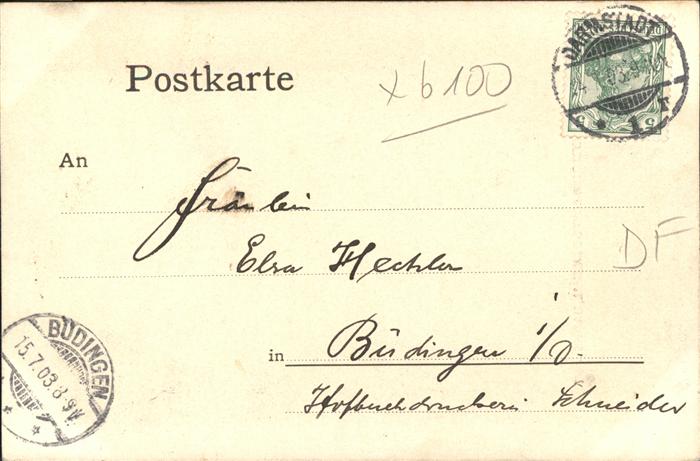 DARMSTADT
Postkarte
x b 100
An
Fräulein
DF
Elsa Hechler
BÜDINGEN
15.7.03.8-9V.
in Büdingen i/O.
Hofbuchdruckerei Schneider